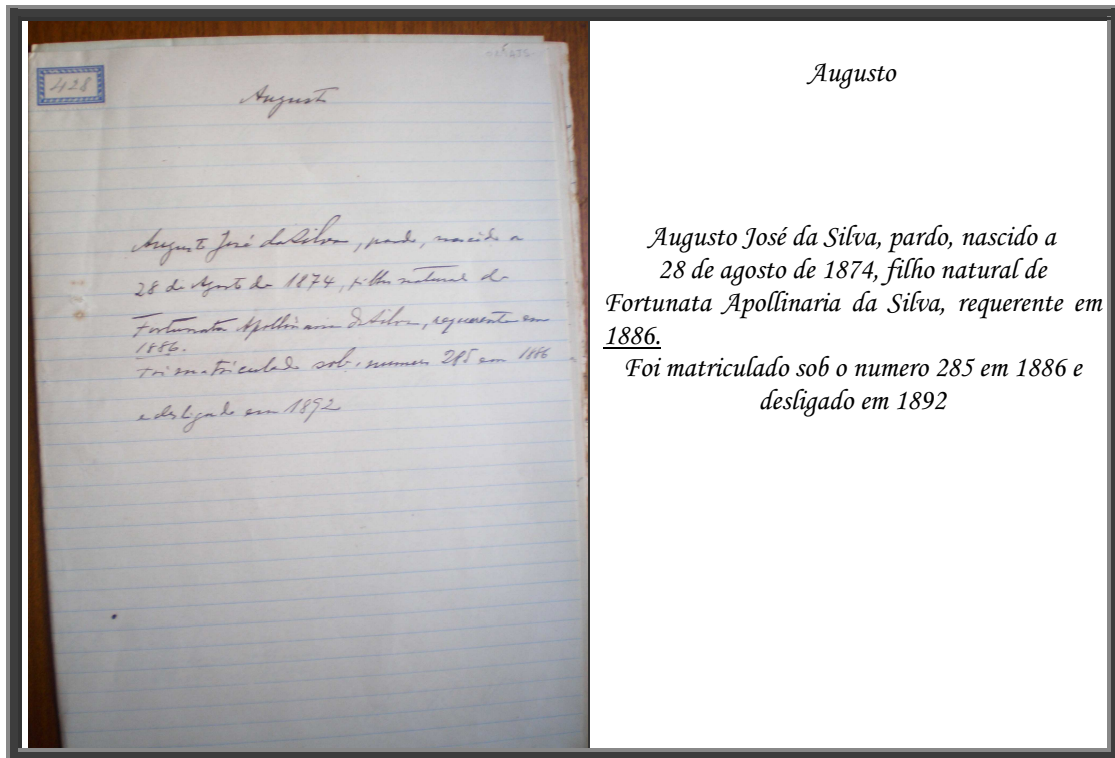 428
Augusto
Augusto José da Silva, pardo, nascido a
28 de Agosto de 1874, filho natural de
Fortunata Apollinaria da Silva, requerente em
1886.
Foi matriculado sob o numero 285 em 1886
e desligado em 1892
Augusto
Augusto José da Silva, pardo, nascido a
28 de agosto de 1874, filho natural de
Fortunata Apollinaria da Silva, requerente em
1886.
Foi matriculado sob o numero 285 em 1886 e
desligado em 1892